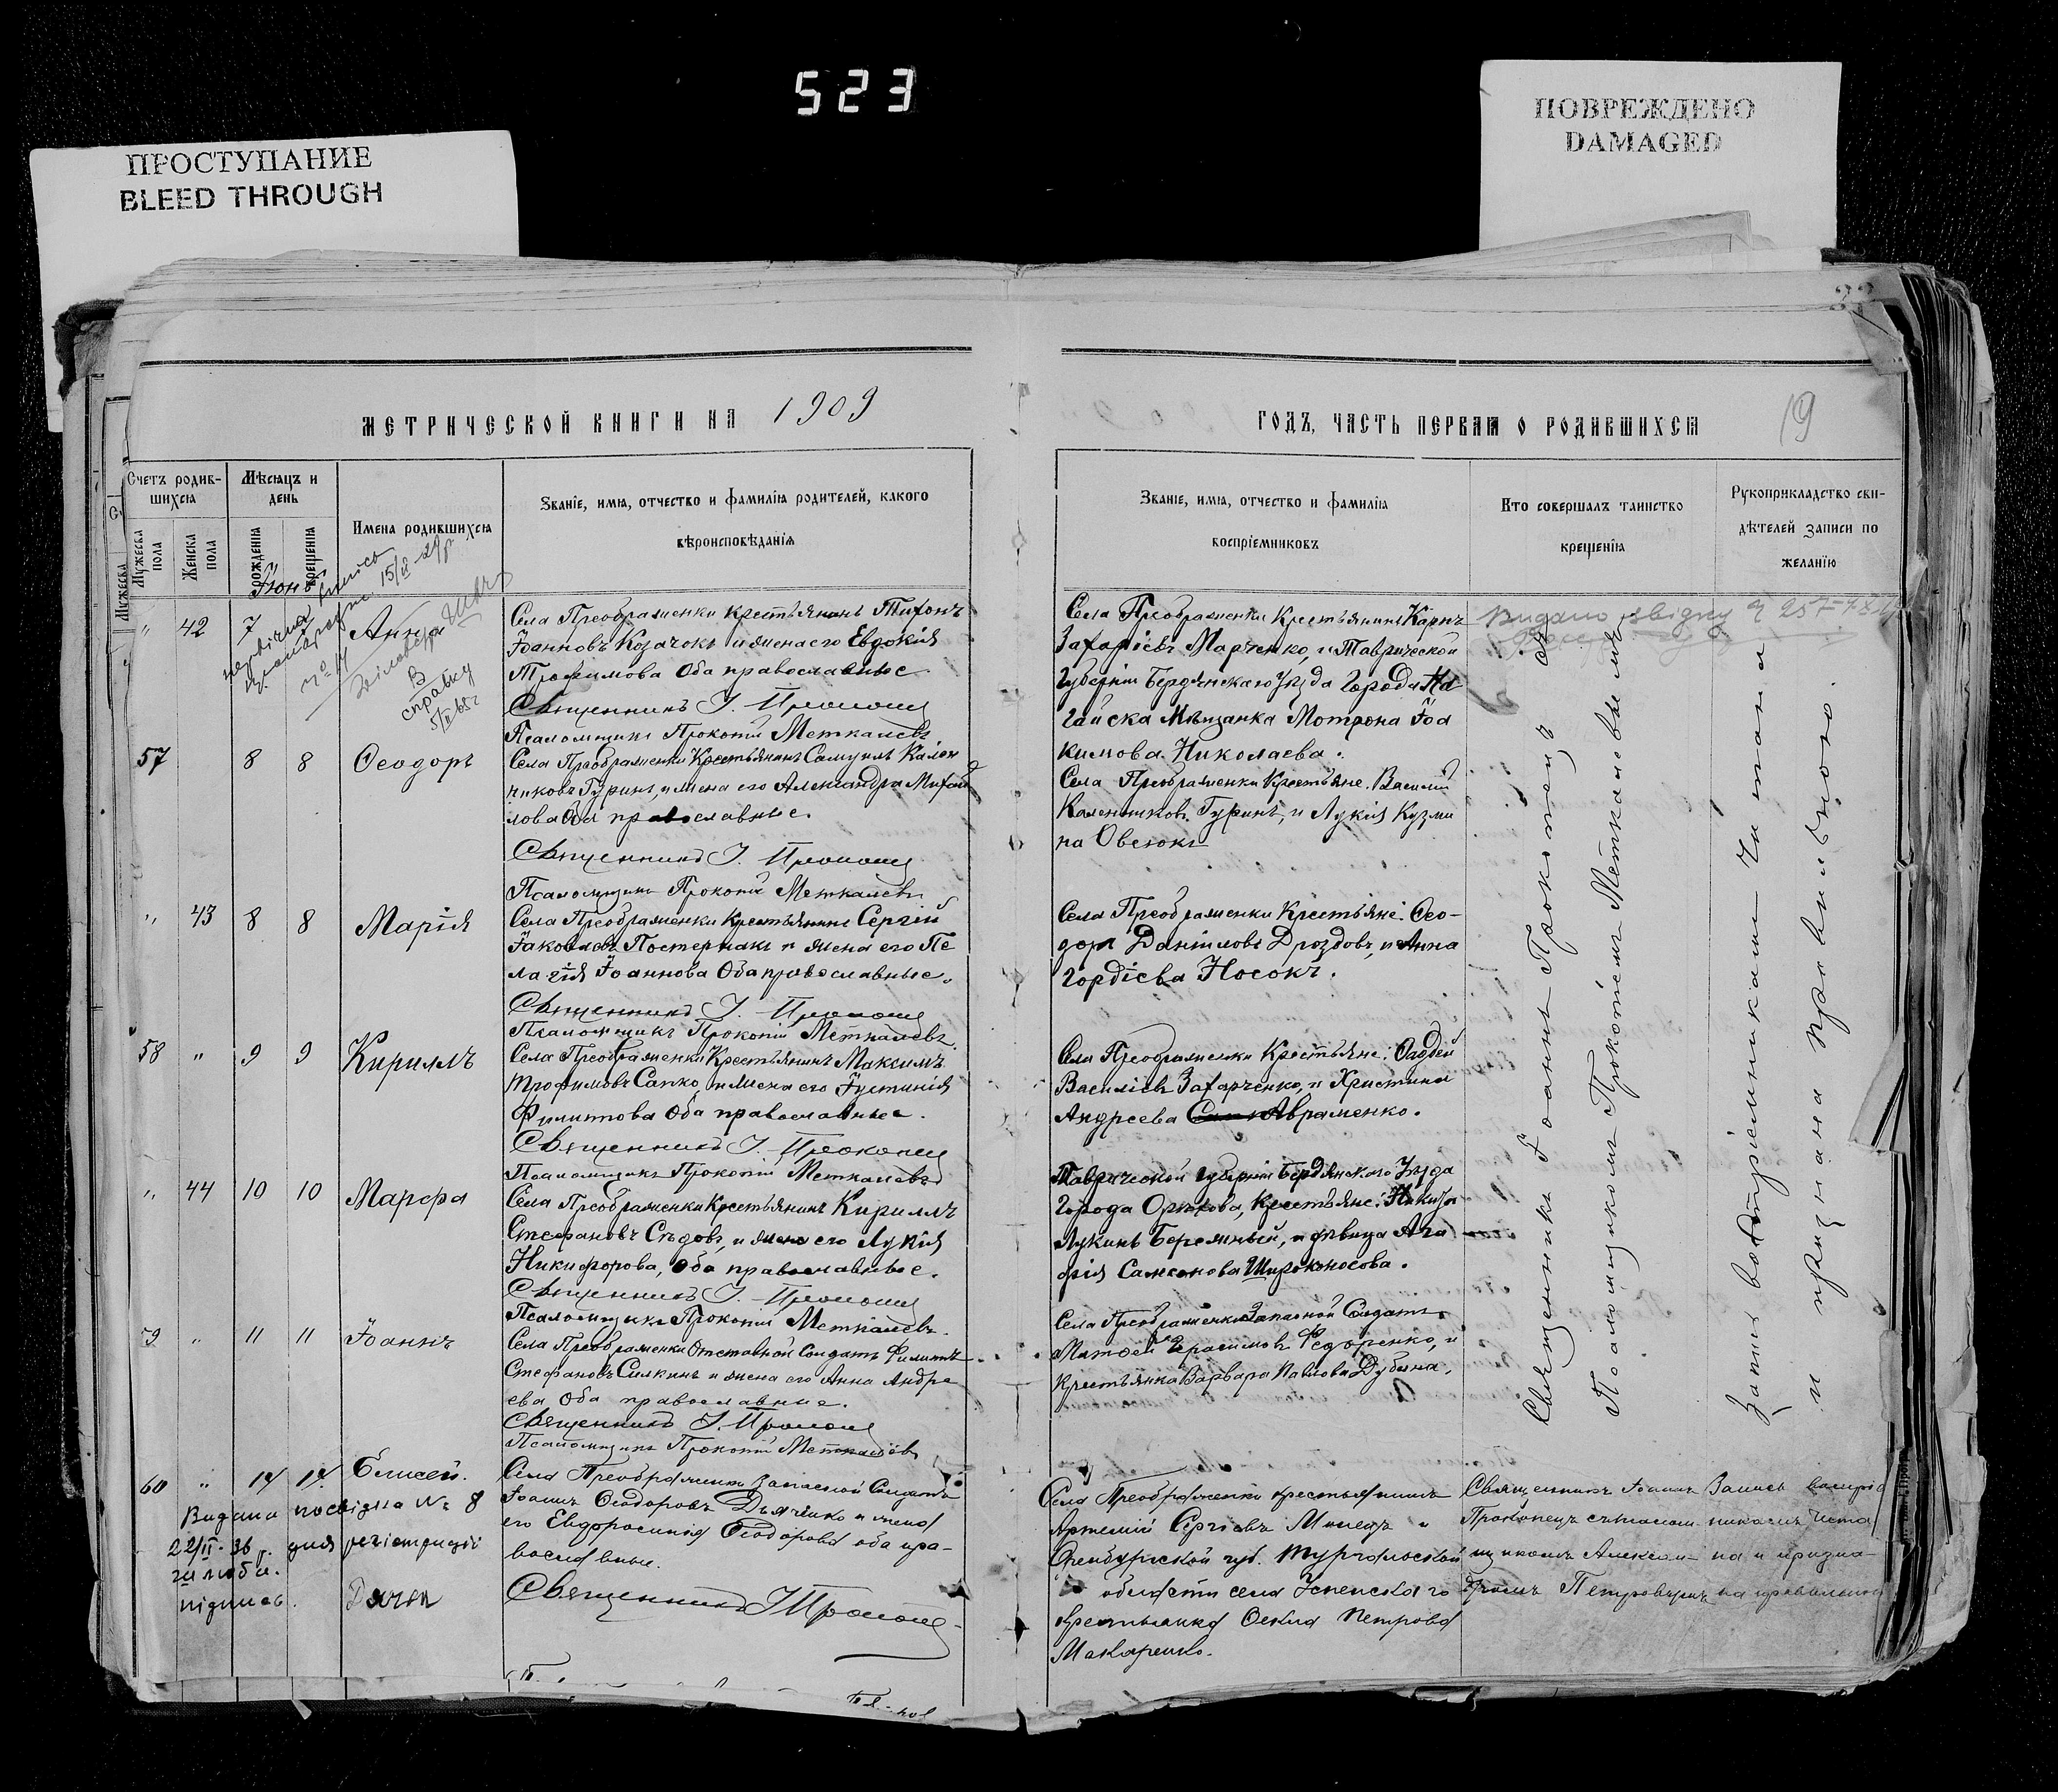 523
ПРОСТУПАНИЕ
BLEED THROUGH
ПОВРЕЖДЕНО
DAMAGED
МЕТРИЧЕСКОЙ КНИГИ НА 1909
ГОДЪ, ЧАСТЬ ПЕРВАЯ О РОДИВШИХСЯ
19
Счетъ родив-
шихся
Мужеска пола
Женска пола
Мѣсяцъ и
день
рожденія
крещенія
Имена родившихся
Званіе, имя, отчество и фамилія родителей, какого
вѣроисповѣданія
Званіе, имя, отчество и фамилія
воспріемниковъ
Кто совершалъ таинство
крещенія
Рукоприкладство сви-
дѣтелей записи по
желанію
Іюнь
" 42 7 Анна
В
справку
Села Преображенки крестьянинъ Тихонъ
Іоанновъ Козачокъ и жена его Евдокія
Трофимова Оба православные
Священникъ І. Прокопец
Псаломщикъ Прокопій Меткалевъ
Села Преображенки Крестьянинъ Карпъ
Захаріевъ Марченко, и Таврической
Губерніи Бердянскаго Уѣзда Города Но
гайска Мѣщанка Мотрона Іоа
кимова Николаева.
57 8 8 Ѳеодоръ
Села Преображенки Крестьянинъ Самуилъ Кален
никовъ Гуринъ, и жена его Александра Михаи
лова Оба православные.
Священникъ І. Прокопец
Псаломщикъ Прокопій Меткалевъ
Села Преображенки Крестьяне. Василій
Каленниковъ Гуринъ, и Лукія Кузми
на Овсюкъ
" 43 8 8 Марія
Села Преображенки Крестьянинъ Сергій
Іаковлевъ Постернакъ и жена его Пе
лагія Іоаннова Оба православные.
Священникъ І. Прокопец
Псаломщикъ Прокопій Меткалевъ.
Села Преображенки Крестьяне. Ѳео-
доръ Даніиловъ Дроздовъ, и Анна
Гордіева Носокъ.
58 " 9 9 Кириллъ
Села Преображенки Крестьянинъ Максимъ
Трофимовъ Сапко, и жена его Іустинія
Филиппова Оба православные.
Священникъ І. Прокопец
Псаломщикъ Прокопій Меткалевъ
Села Преображенки Крестьяне:
Василіевъ Захарченко, и Христина
Андреева Авраменко.
" 44 10 10 Марфа
Села Преображенки Крестьянинъ Кириллъ
Стефановъ Сѣдовъ, и жена его Лукія
Никифорова, Оба православные.
Священникъ І. Прокопец
Псаломщикъ Прокопій Меткалевъ.
Таврической губерніи Бердянскаго Уѣзда
Города Орѣхова, Крестьяне: Никита
Лукинъ Бережный, и дѣвица Ага
фія Самсонова Широконосова.
59 " 11 11 Іоаннъ
Села Преображенки Отставной Солдатъ Филиппъ
Стефановъ Силкинъ и жена его Анна Андре
ева Оба православные.
Священникъ І. Прокопец
Псаломщикъ Прокопій Меткалевъ
Села Преображенки Запасной Солдатъ
Матѳей Герасимовъ Федоренко, и
крестьянка Варвара Павлова Дубина.
Священникъ Іоаннъ Прокопецъ съ
Псаломщикомъ Прокопіемъ Меткалевымъ
Запись воспріемниками читана
и признана правильною.
60 " 14 14 Елисей.
Видана посвідка № 8
22/II-36 р. для регістрації
шлюбу.
підпись. Дячен
Села Преображенки Запасной Солдатъ
Іоаннъ Ѳеодоровъ Дьяченко и жена
его Евдоросинія Ѳеодорова оба пра-
вославные.
Священникъ І Прокопец
Села Преображенки крестьянинъ
Артемій Сергіевъ Молецъ и
Оренбургской губ. Тургайской
области села Успенскаго
Крестьянка Ѳекла Петрова
Макаренко.
Священникъ Іоаннъ
Прокопецъ съ псалом-
щикомъ Алексан-
дромъ Петровымъ
Запись воспріе
никами чита
на и призна-
на правильно